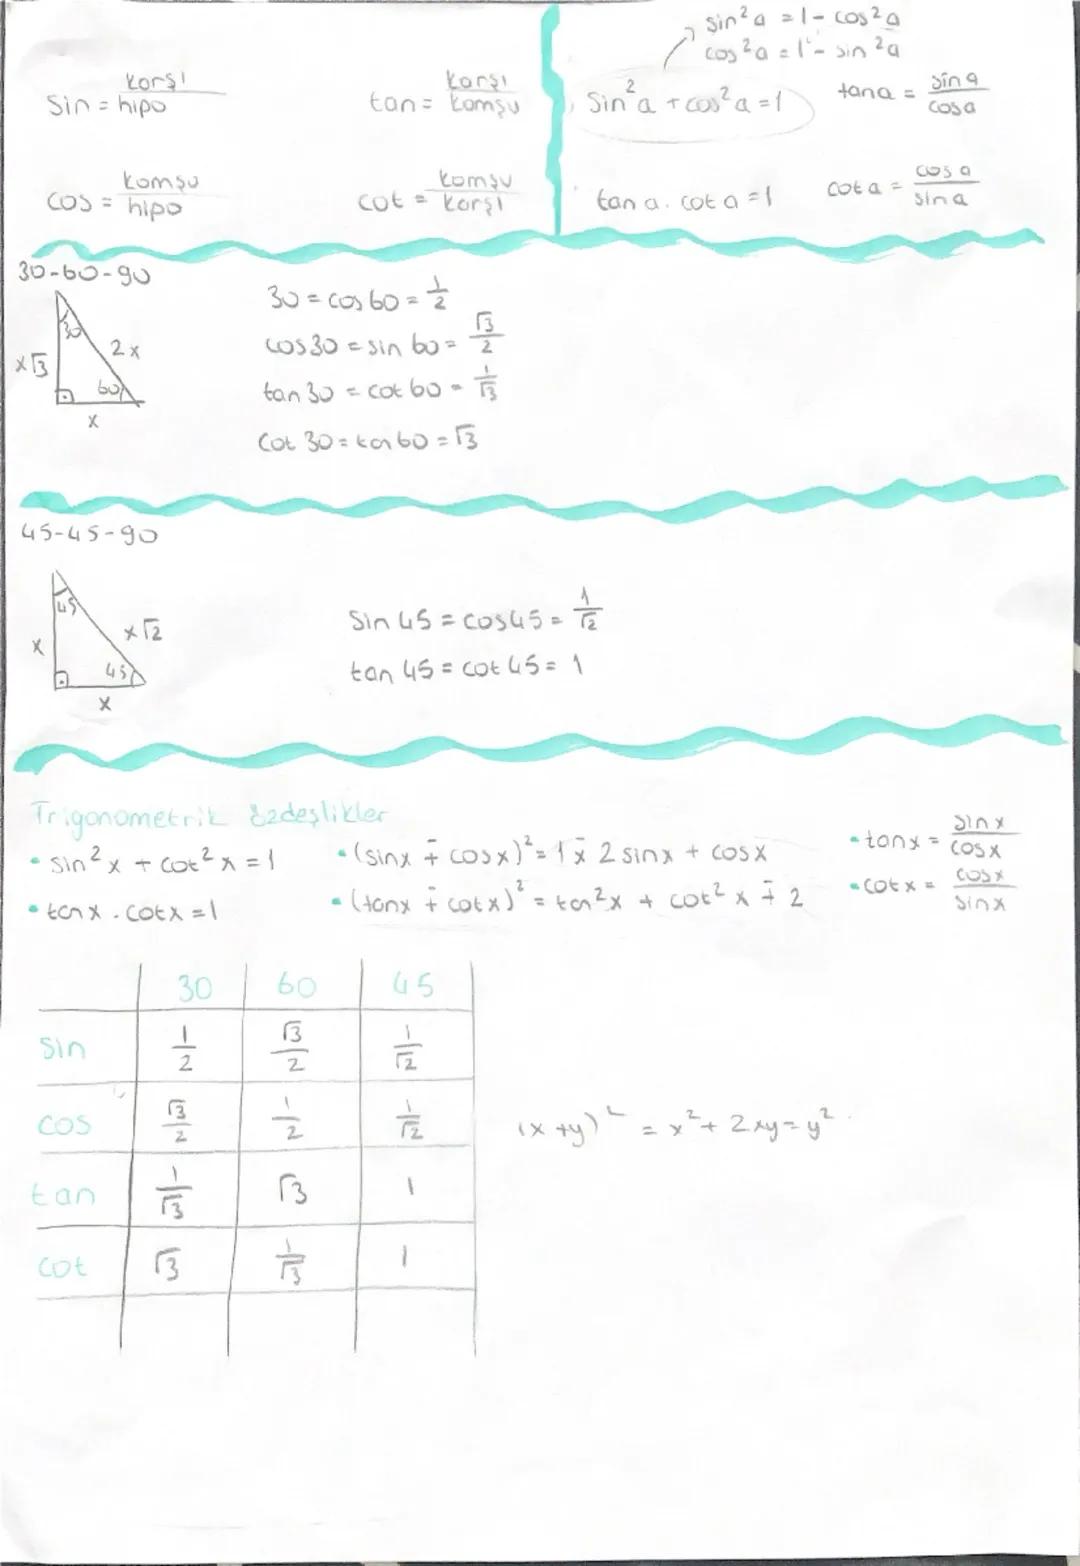 sin²a = 1 - cos²a
cos²a = 1 - sin²a
Sin = karşı / hipo
tan = karşı / komşu
Sin²a + cos²a = 1
tana = sina / cosa
cos = komşu / hipo
cot = komşu / karşı
tan a . cot a = 1
cota = cosa / sina
30-60-90
30
2x
x√3
60
x
30 = cos 60 = 1/2
cos30 = sin 60 = √3/2
tan 30 = cot 60 = 1/√3
Cot 30 = tan 60 = √3
45-45-90
45
x
x√2
45
x
Sin 45 = cos45 = 1/√2
tan 45 = cot 45 = 1
Trigonometrik özdeşlikler
• Sin²x + cot²x = 1
• tanx . Cotx = 1
• (sinx ∓ cosx)² = 1 ∓ 2 sinx + cosx
• (tanx ∓ cotx)² = tan²x + cot²x ∓ 2
• tanx = sinx / cosx
• cotx = cosx / sinx
30 60 45
Sin 1/2 √3/2 1/√2
cos √3/2 1/2 1/√2
tan 1/√3 √3 1
cot √3 1/√3 1
(x+y)² = x² + 2xy = y²